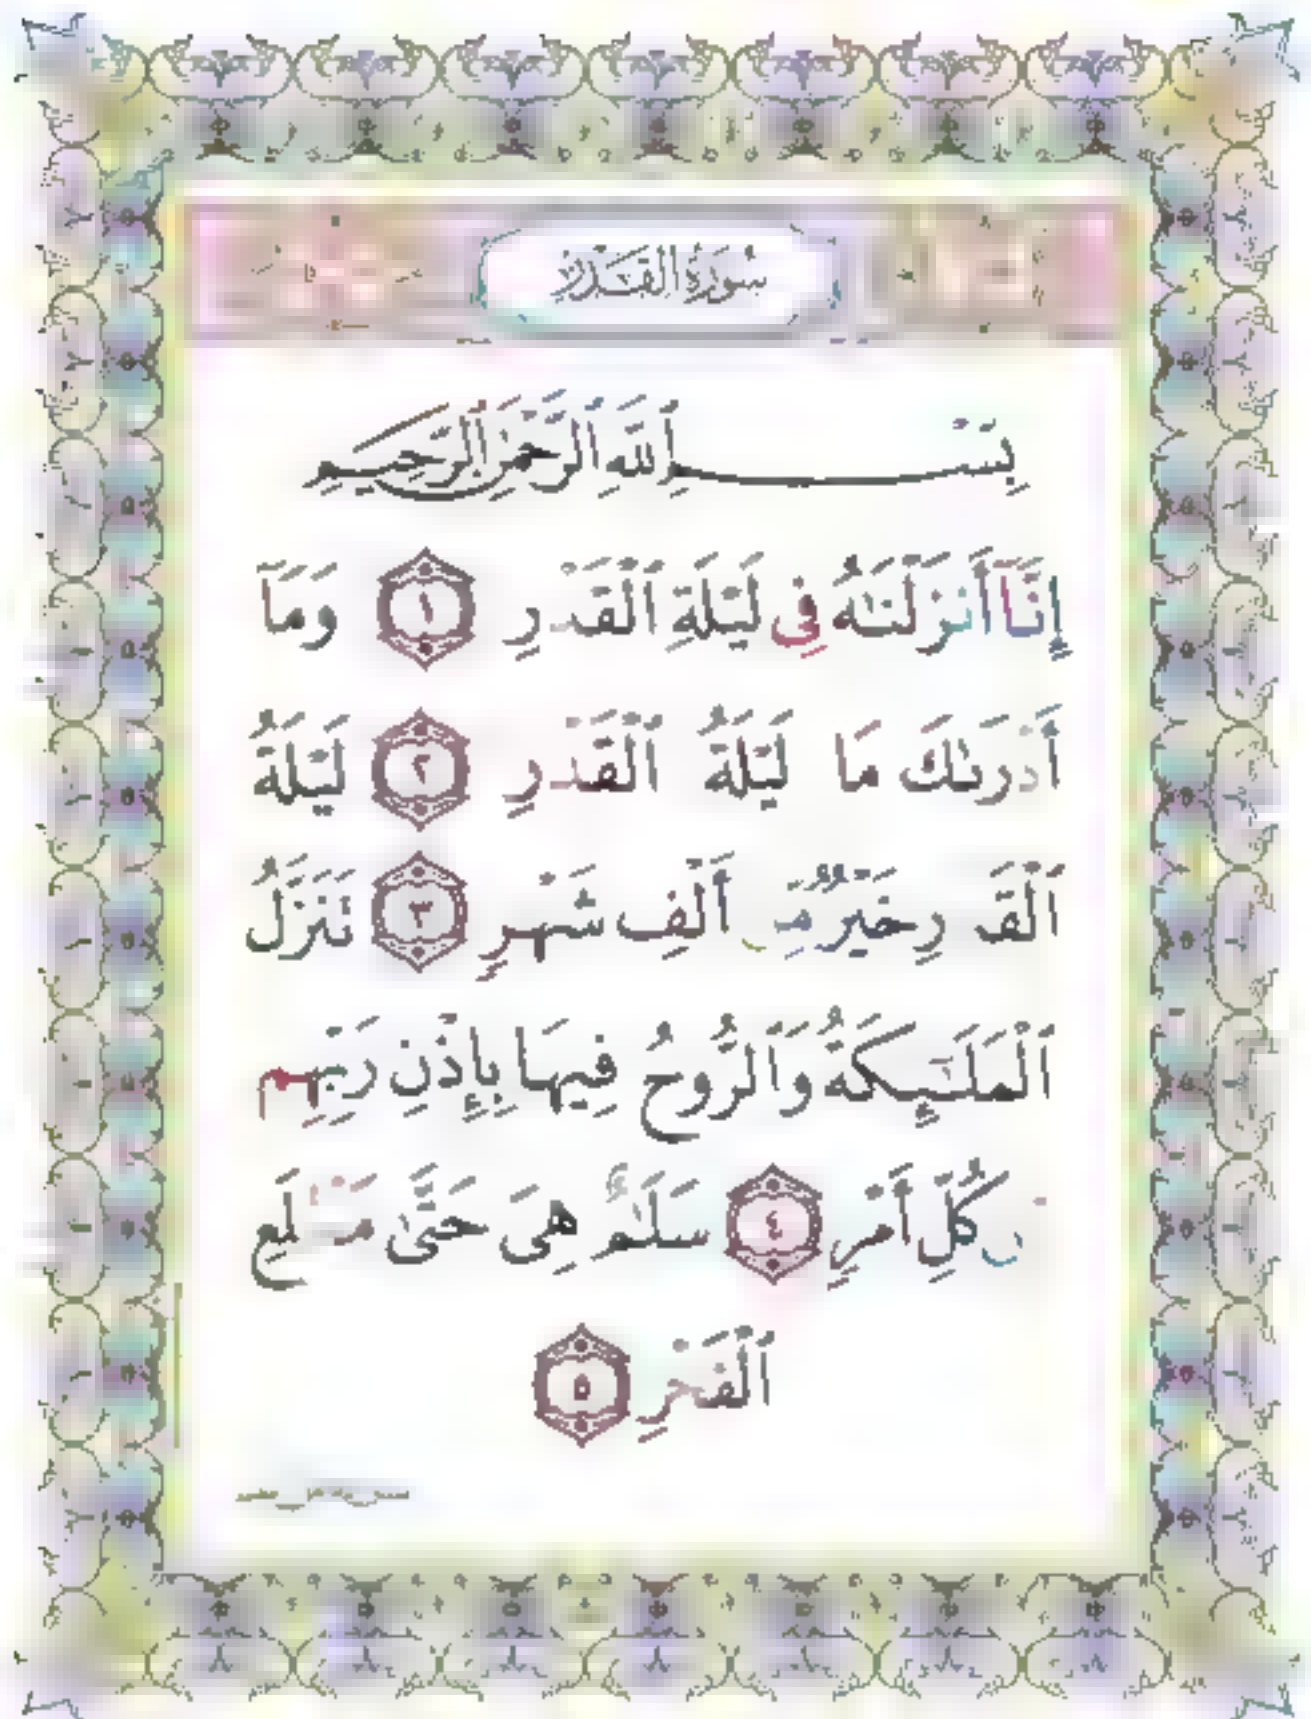 سُورَةُ القَدْرِ
بِسْمِ ٱللَّهِ ٱلرَّحْمَٰنِ ٱلرَّحِيمِ
إِنَّآ أَنزَلْنَٰهُ فِى لَيْلَةِ ٱلْقَدْرِ ١ وَمَآ
أَدْرَىٰكَ مَا لَيْلَةُ ٱلْقَدْرِ ٢ لَيْلَةُ
خَيْرٌ أَلْفِ شَهْرٍ ٣ تَنَزَّلُ
ٱلْمَلَٰٓئِكَةُ وَٱلرُّوحُ فِيهَا بِإِذْنِ رَبِّهِم
كُلِّ أَمْرٍ ٤ سَلَٰمٌ هِىَ حَتَّىٰ
ٱلْفَجْرِ ٥